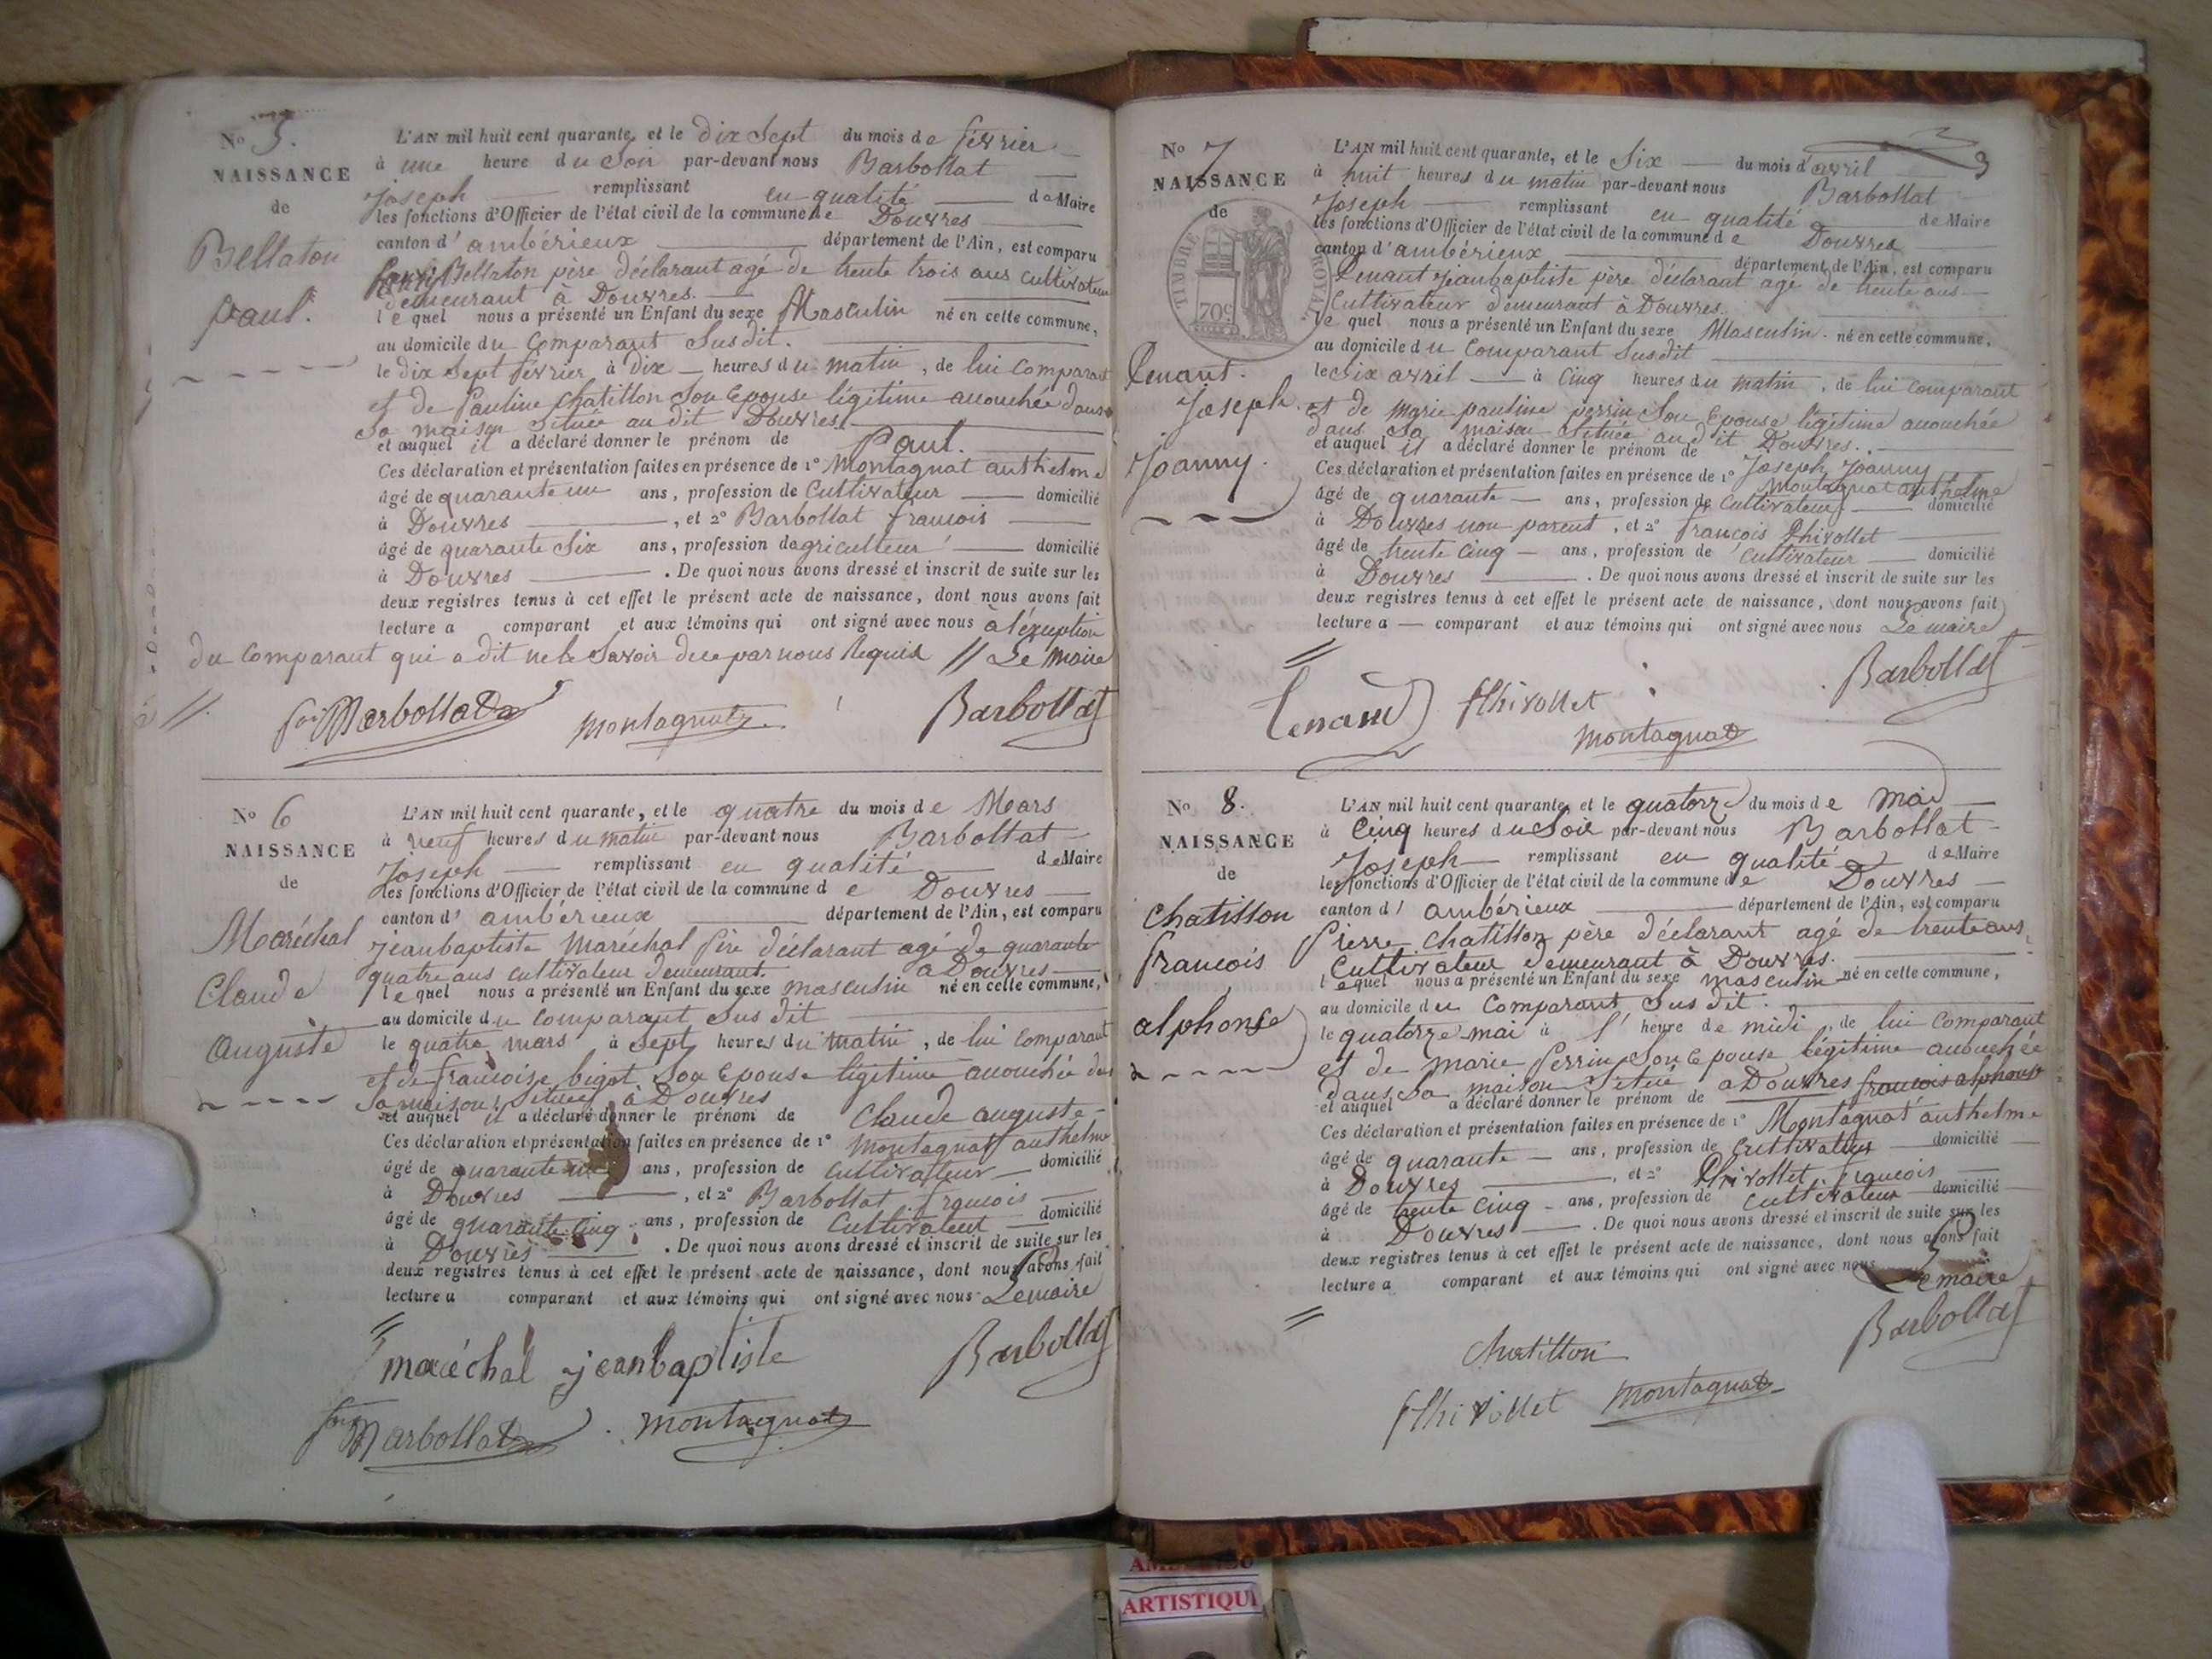 No 5.
NAISSANCE
de
Bellaton
paul.
L'AN mil huit cent quarante, et le dix Sept du mois de février
à une heure du Soir par-devant nous Barbollat
Joseph remplissant en qualité de Maire
les fonctions d'Officier de l'état civil de la commune de Douvres
canton d'ambérieux département de l'Ain, est comparu
Bellaton père déclarant agé de trente trois ans cultivateur
demeurant à Douvres.
lequel nous a présenté un Enfant du sexe Masculin né en cette commune,
au domicile du Comparant Susdit.
le dix Sept février à dix heures du matin, de lui comparant
et de Pauline chatillon Son Epouse légitime accouchée dans
Sa maison Située au dit Douvres.
et auquel il a déclaré donner le prénom de Paul.
Ces déclaration et présentation faites en présence de 1° Montagnat anthelme
âgé de quarante un ans, profession de Cultivateur domicilié
à Douvres, et 2° Barbollat francois
âgé de quarante Six ans, profession dagriculteur domicilié
à Douvres. De quoi nous avons dressé et inscrit de suite sur les
deux registres tenus à cet effet le présent acte de naissance, dont nous avons fait
lecture a comparant et aux témoins qui ont signé avec nous à l'exeption
du Comparant qui a dit ne le Savoir de ce par nous Requis // Le Maire
Barbollat montagnat Barbollat
No 6
NAISSANCE
de
Maréchal
Claude
auguste
L'AN mil huit cent quarante, et le quatre du mois de Mars
à neuf heures du matin par-devant nous Barbollat
Joseph remplissant en qualité de Maire
les fonctions d'Officier de l'état civil de la commune de Douvres
canton d'ambérieux département de l'Ain, est comparu
jeanbaptiste Maréchal père déclarant agé de quarante
quatre ans cultivateur demeurant a Douvres
lequel nous a présenté un Enfant du sexe masculin né en cette commune,
au domicile du comparant Sus dit
le quatre mars à Sept heures du matin, de lui comparant
et de francoise bigot Son Epouse légitime accouchée dans
Sa maison Située à Douvres
et auquel il a déclaré donner le prénom de Claude auguste
Ces déclaration et présentation faites en présence de 1° Montagnat anthelme
âgé de quarante ans, profession de cultivateur domicilié
à Douvres, et 2° Barbollat francois
âgé de quarante cinq ans, profession de Cultivateur domicilié
à Douvres. De quoi nous avons dressé et inscrit de suite sur les
deux registres tenus à cet effet le présent acte de naissance, dont nous avons fait
lecture a comparant et aux témoins qui ont signé avec nous Le maire
maréchal jeanbaptiste Barbollat
Barbollat montagnat
No 7
NAISSANCE
de
TIMBRE ROYAL
70c
Lenant.
Joseph
Joanny.
L'AN mil huit cent quarante, et le Six du mois d'avril
à huit heures du matin par-devant nous Barbollat
Joseph remplissant en qualité de Maire
les fonctions d'Officier de l'état civil de la commune de Douvres
canton d'ambérieux département de l'Ain, est comparu
Lenant jeanbaptiste père déclarant agé de trente ans
Cultivateur demeurant à Douvres.
lequel nous a présenté un Enfant du sexe Masculin. né en cette commune,
au domicile du Comparant Susdit
le Six avril à Cinq heures du matin, de lui comparant
et de marie pauline perrin Son Epouse légitime accouchée
dans Sa maison Située au dit Douvres.
et auquel il a déclaré donner le prénom de Joseph Joanny
Ces déclaration et présentation faites en présence de 1° Montagnat anthelme
âgé de quarante ans, profession de Cultivateur domicilié
à Douvres non parent, et 2° françois Thivollet
âgé de trente cinq ans, profession de cultivateur domicilié
à Douvres. De quoi nous avons dressé et inscrit de suite sur les
deux registres tenus à cet effet le présent acte de naissance, dont nous avons fait
lecture a comparant et aux témoins qui ont signé avec nous Le maire
Lenand fthivollet Barbollat
montagnat
No 8.
NAISSANCE
de
Chatillon
francois
alphonse
L'AN mil huit cent quarante, et le quatorze du mois de Mai
à Cinq heures du Soir par-devant nous Barbollat
Joseph remplissant en qualité de Maire
les fonctions d'Officier de l'état civil de la commune de Douvres
canton d'ambérieux département de l'Ain, est comparu
Pierre Chatillon père déclarant agé de trente ans
Cultivateur demeurant à Douvres.
lequel nous a présenté un Enfant du sexe masculin né en cette commune,
au domicile du Comparant Sus dit.
le quatorze mai à l' heure de midi, de lui comparant
et de marie Perrin Son Epouse légitime accouchée
dans Sa maison Située a Douvres francois alphonse
et auquel a déclaré donner le prénom de
Ces déclaration et présentation faites en présence de 1° Montagnat anthelme
âgé de quarante ans, profession de Cultivateur domicilié
à Douvres, et 2° Thivollet francois
âgé de trente cinq ans, profession de cultivateur domicilié
à Douvres. De quoi nous avons dressé et inscrit de suite sur les
deux registres tenus à cet effet le présent acte de naissance, dont nous avons fait
lecture a comparant et aux témoins qui ont signé avec nous Le maire
Chatillon Barbollat
fthivollet montagnat
ARTISTIQU